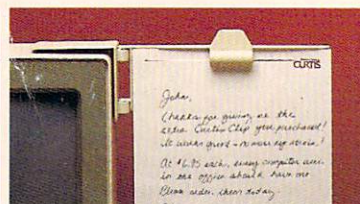 CURTIS
John,
Thanks for giving me the
extra Curtis Clip you purchased!
It works great - no more eye strain!
At $6.95 each, every computer user
in our office should have one.
Please order them today.